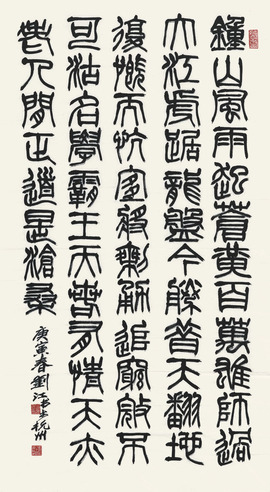 鐘山風雨起蒼黃百萬雄師過
大江虎踞龍盤今勝昔天翻地
復慨而忼宜將剩勇追窮寇不
可沽名學霸王天若有情天亦
老人間正道是滄桑
庚寅春劉江書於杭州